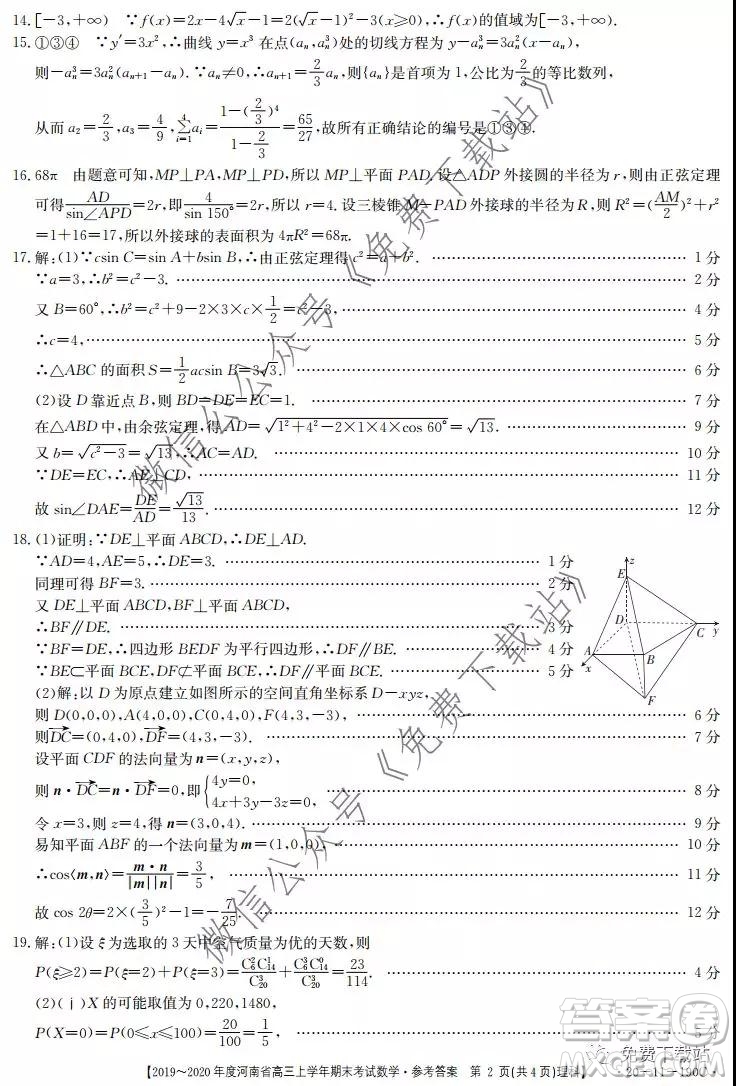 14.[-3,+∞). ∵f(x)=2x-4√x-1=2(√x-1)²-3(x≥0),∴f(x)的值域为[-3,+∞).
15.①③④ ∵y′=3x²,∴曲线 y=x³ 在点(aₙ,aₙ³)处的切线方程为 y-aₙ³=3aₙ²(x-aₙ),
则-aₙ³=3aₙ²(aₙ₊₁-aₙ).∵aₙ≠0,∴aₙ₊₁=2/3 aₙ,则{aₙ}是首项为 1,公比为 2/3 的等比数列,
从而 a₂=2/3,a₃=4/9,∑(i=1→4)aᵢ=(1-(2/3)⁴)/(1-2/3)=65/27,故所有正确结论的编号是①③④.
16.68π 由题意可知,MP⊥PA,MP⊥PD,所以 MP⊥平面 PAD.设△ADP 外接圆的半径为 r,则由正弦定理
可得 AD/sin∠APD=2r,即 4/sin 150°=2r,所以 r=4.设三棱锥 M-PAD 外接球的半径为 R,则 R²=(AM/2)²+r²
=1+16=17,所以外接球的表面积为 4πR²=68π.
17.解:(1)∵csin C=sin A+bsin B,∴由正弦定理得 c²=a+b². 1 分
∵a=3,∴b²=c²-3. 2 分
又 B=60°,∴b²=c²+9-2×3×c×1/2=c²-3, 4 分
∴c=4, 5 分
∴△ABC 的面积 S=1/2 acsin B=3√3. 6 分
(2)设 D 靠近点 B,则 BD=DE=EC=1. 7 分
在△ABD 中,由余弦定理,得 AD=√(1²+4²-2×1×4×cos 60°)=√13. 9 分
又 b=√(c²-3)=√13,∴AC=AD. 10 分
∵DE=EC,∴AE⊥CD, 11 分
故 sin∠DAE=DE/AD=√13/13. 12 分
18.(1)证明:∵DE⊥平面 ABCD,∴DE⊥AD.
∵AD=4,AE=5,∴DE=3. 1 分
同理可得 BF=3. 2 分
又 DE⊥平面 ABCD,BF⊥平面 ABCD,
∴BF∥DE. 3 分
∵BF=DE,∴四边形 BEDF 为平行四边形,∴DF∥BE. 4 分
∵BE⊂平面 BCE,DF⊄平面 BCE,∴DF∥平面 BCE. 5 分
z
E
D
C y
A
B
x
F
(2)解:以 D 为原点建立如图所示的空间直角坐标系 D-xyz,
则 D(0,0,0),A(4,0,0),C(0,4,0),F(4,3,-3), 6 分
则 DC→=(0,4,0),DF→=(4,3,-3). 7 分
设平面 CDF 的法向量为 n=(x,y,z),
则 n·DC→=n·DF→=0,即{4y=0, 4x+3y-3z=0, 8 分
令 x=3,则 z=4,得 n=(3,0,4). 9 分
易知平面 ABF 的一个法向量为 m=(1,0,0), 10 分
∴cos⟨m,n⟩=m·n/|m||n|=3/5, 11 分
故 cos 2θ=2×(3/5)²-1=-7/25. 12 分
19.解:(1)设 ξ 为选取的 3 天中空气质量为优的天数,则
P(ξ≥2)=P(ξ=2)+P(ξ=3)=C₆²C₁₄¹/C₂₀³+C₆³C₁₄⁰/C₂₀³=23/114. 4 分
(2)(ⅰ)X 的可能取值为 0,220,1480,
P(X=0)=P(0≤x≤100)=20/100=1/5, 5 分
【2019~2020 年度河南省高三上学期期末考试数学·参考答案 第 2 页(共 4 页)理科】
·20-11-190C·
微信公众号《免费下载站》
微信公众号《免费下载站》
免费下载站
答案圈